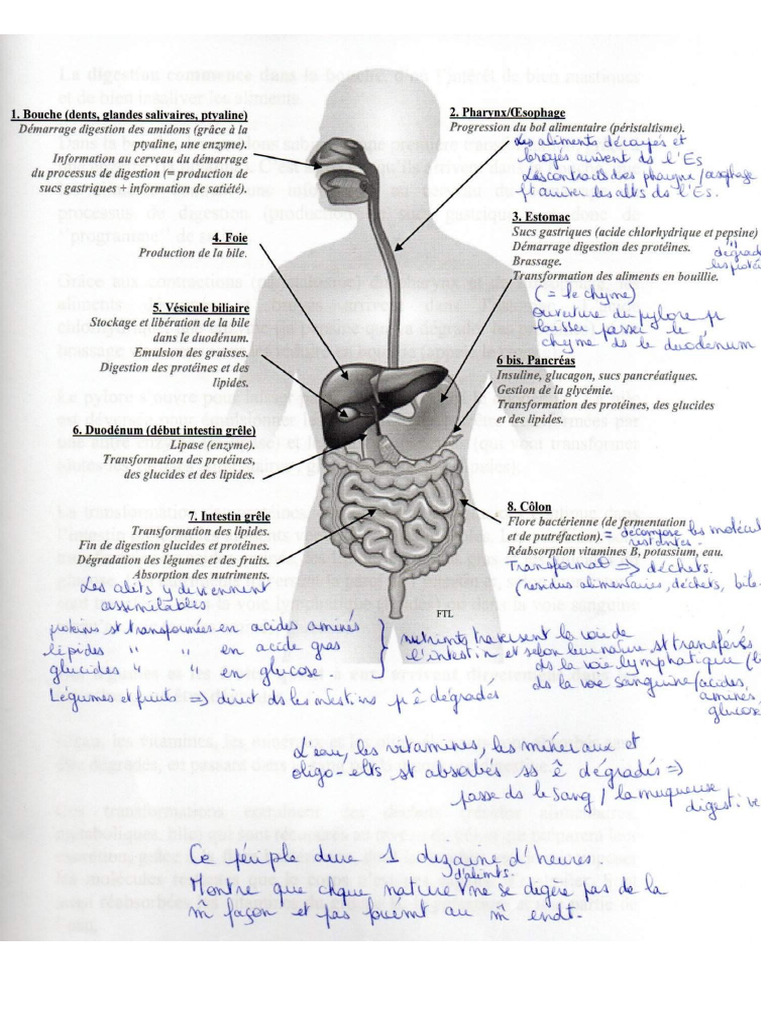 1. Bouche (dents, glandes salivaires, ptyaline)
Démarrage digestion des amidons (grâce à la
ptyaline, une enzyme).
Information au cerveau du démarrage
du processus de digestion (= production de
sucs gastriques + information de satiété).
2. Pharynx/Œsophage
Progression du bol alimentaire (péristaltisme).
Les aliments découpés et
broyés arrivent ds l'Es
Les contract° des pharynx/œsophage
ft arriver les alts ds l'Es.
3. Estomac
Sucs gastriques (acide chlorhydrique et pepsine)
Démarrage digestion des protéines.
Brassage.
Transformation des aliments en bouillie.
(= le chyme)
ouverture du pylore pr
laisser passer le
chyme ds le duodénum
4. Foie
Production de la bile.
5. Vésicule biliaire
Stockage et libération de la bile
dans le duodénum.
Emulsion des graisses.
Digestion des protéines et des
lipides.
6 bis. Pancréas
Insuline, glucagon, sucs pancréatiques.
Gestion de la glycémie.
Transformation des protéines, des glucides
et des lipides.
6. Duodénum (début intestin grêle)
Lipase (enzyme).
Transformation des protéines,
des glucides et des lipides.
7. Intestin grêle
Transformation des lipides.
Fin de digestion glucides et protéines.
Dégradation des légumes et des fruits.
Absorption des nutriments.
8. Côlon
Flore bactérienne (de fermentation
et de putréfaction). = décompose les molécul
restantes.
Réabsorption vitamines B, potassium, eau.
Transformat° => déchets.
(résidus alimentaires, déchets, bile
FTL
Les alets y deviennent
assimilables
protéines st transformées en acides aminés
lipides " " en acide gras
glucides " " en glucose.
nutriments traversent la voie de
l'intestin et selon leur nature st transférés
ds la voie lymphatique (l
ds la voie sanguine/acides
aminés
glucose
Légumes et fruits => direct ds les intestins pr ê dégradés
L'eau, les vitamines, les minéraux et
oligo-elts st absorbés ss ê dégradés =>
passe ds le sang / la muqueuse
digestive
Ce périple dure 1 dizaine d'heures.
Montre que chque nature d'alimts. ne se digère pas de la
m̂ façon et pas forcemt au m̂ endt.